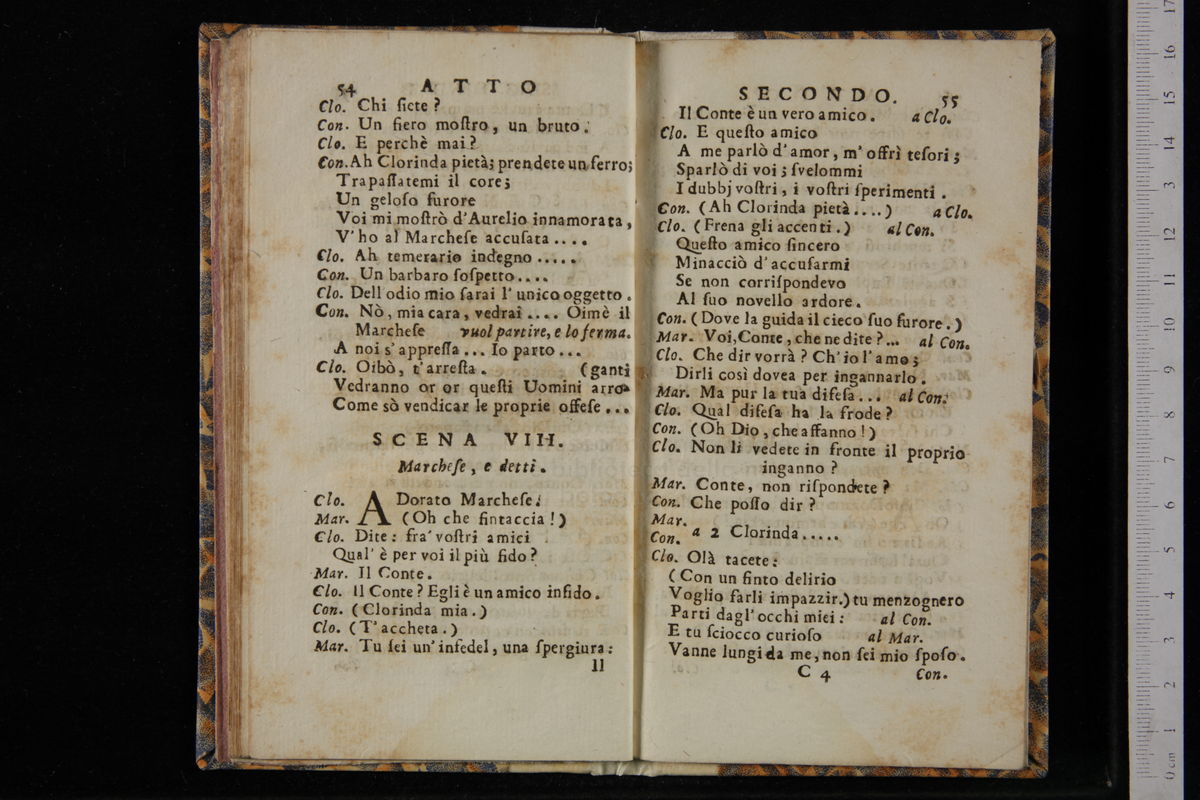 54 ATTO
Clo. Chi ſiete?
Con. Un fiero moſtro, un bruto.
Clo. E perchè mai?
Con. Ah Clorinda pietà; prendete un ferro;
Trapaſſatemi il core;
Un geloſo furore
Voi mi moſtrò d'Aurelio innamorata,
V'ho al Marcheſe accuſata ....
Clo. Ah temerario indegno .....
Con. Un barbaro ſoſpetto....
Clo. Dell odio mio ſarai l'unico oggetto.
Con. Nò, mia cara, vedrai .... Oimè il
Marcheſe vuol partire, e lo ferma.
A noi s'appreſſa... Io parto...
Clo. Oibò, t'arreſta. (ganti
Vedranno or or queſti Uomini arro-
Come sò vendicar le proprie offeſe...
SCENA VIII.
Marcheſe, e detti.
Clo. ADorato Marcheſe.
Mar. (Oh che fintaccia!)
Clo. Dite: fra' voſtri amici
Qual' è per voi il più fido?
Mar. Il Conte.
Clo. Il Conte? Egli è un amico infido.
Con. (Clorinda mia.)
Clo. (T'accheta.)
Mar. Tu ſei un' infedel, una ſpergiura:
Il
SECONDO. 55
Il Conte è un vero amico. a Clo.
Clo. E queſto amico
A me parlò d'amor, m'offrì teſori;
Sparlò di voi; ſvelommi
I dubbj voſtri, i voſtri ſperimenti.
Con. (Ah Clorinda pietà....) a Clo.
Clo. (Frena gli accenti.) al Con.
Queſto amico ſincero
Minacciò d'accuſarmi
Se non corriſpondevo
Al ſuo novello ardore.
Con. (Dove la guida il cieco ſuo furore.)
Mar. Voi, Conte, che ne dite?... al Con.
Clo. Che dir vorrà? Ch'io l'amo;
Dirli così dovea per ingannarlo.
Mar. Ma pur la tua difeſa... al Con.
Clo. Qual difeſa ha la frode?
Con. (Oh Dio, che affanno!)
Clo. Non li vedete in fronte il proprio
inganno?
Mar. Conte, non riſpondete?
Con. Che poſſo dir?
Mar.
Con. a 2 Clorinda.....
Clo. Olà tacete:
(Con un finto delirio
Voglio farli impazzir.) tu menzognero
Parti dagl'occhi miei: al Con.
E tu ſciocco curioſo al Mar.
Vanne lungi da me, non ſei mio ſpoſo.
C 4 Con.